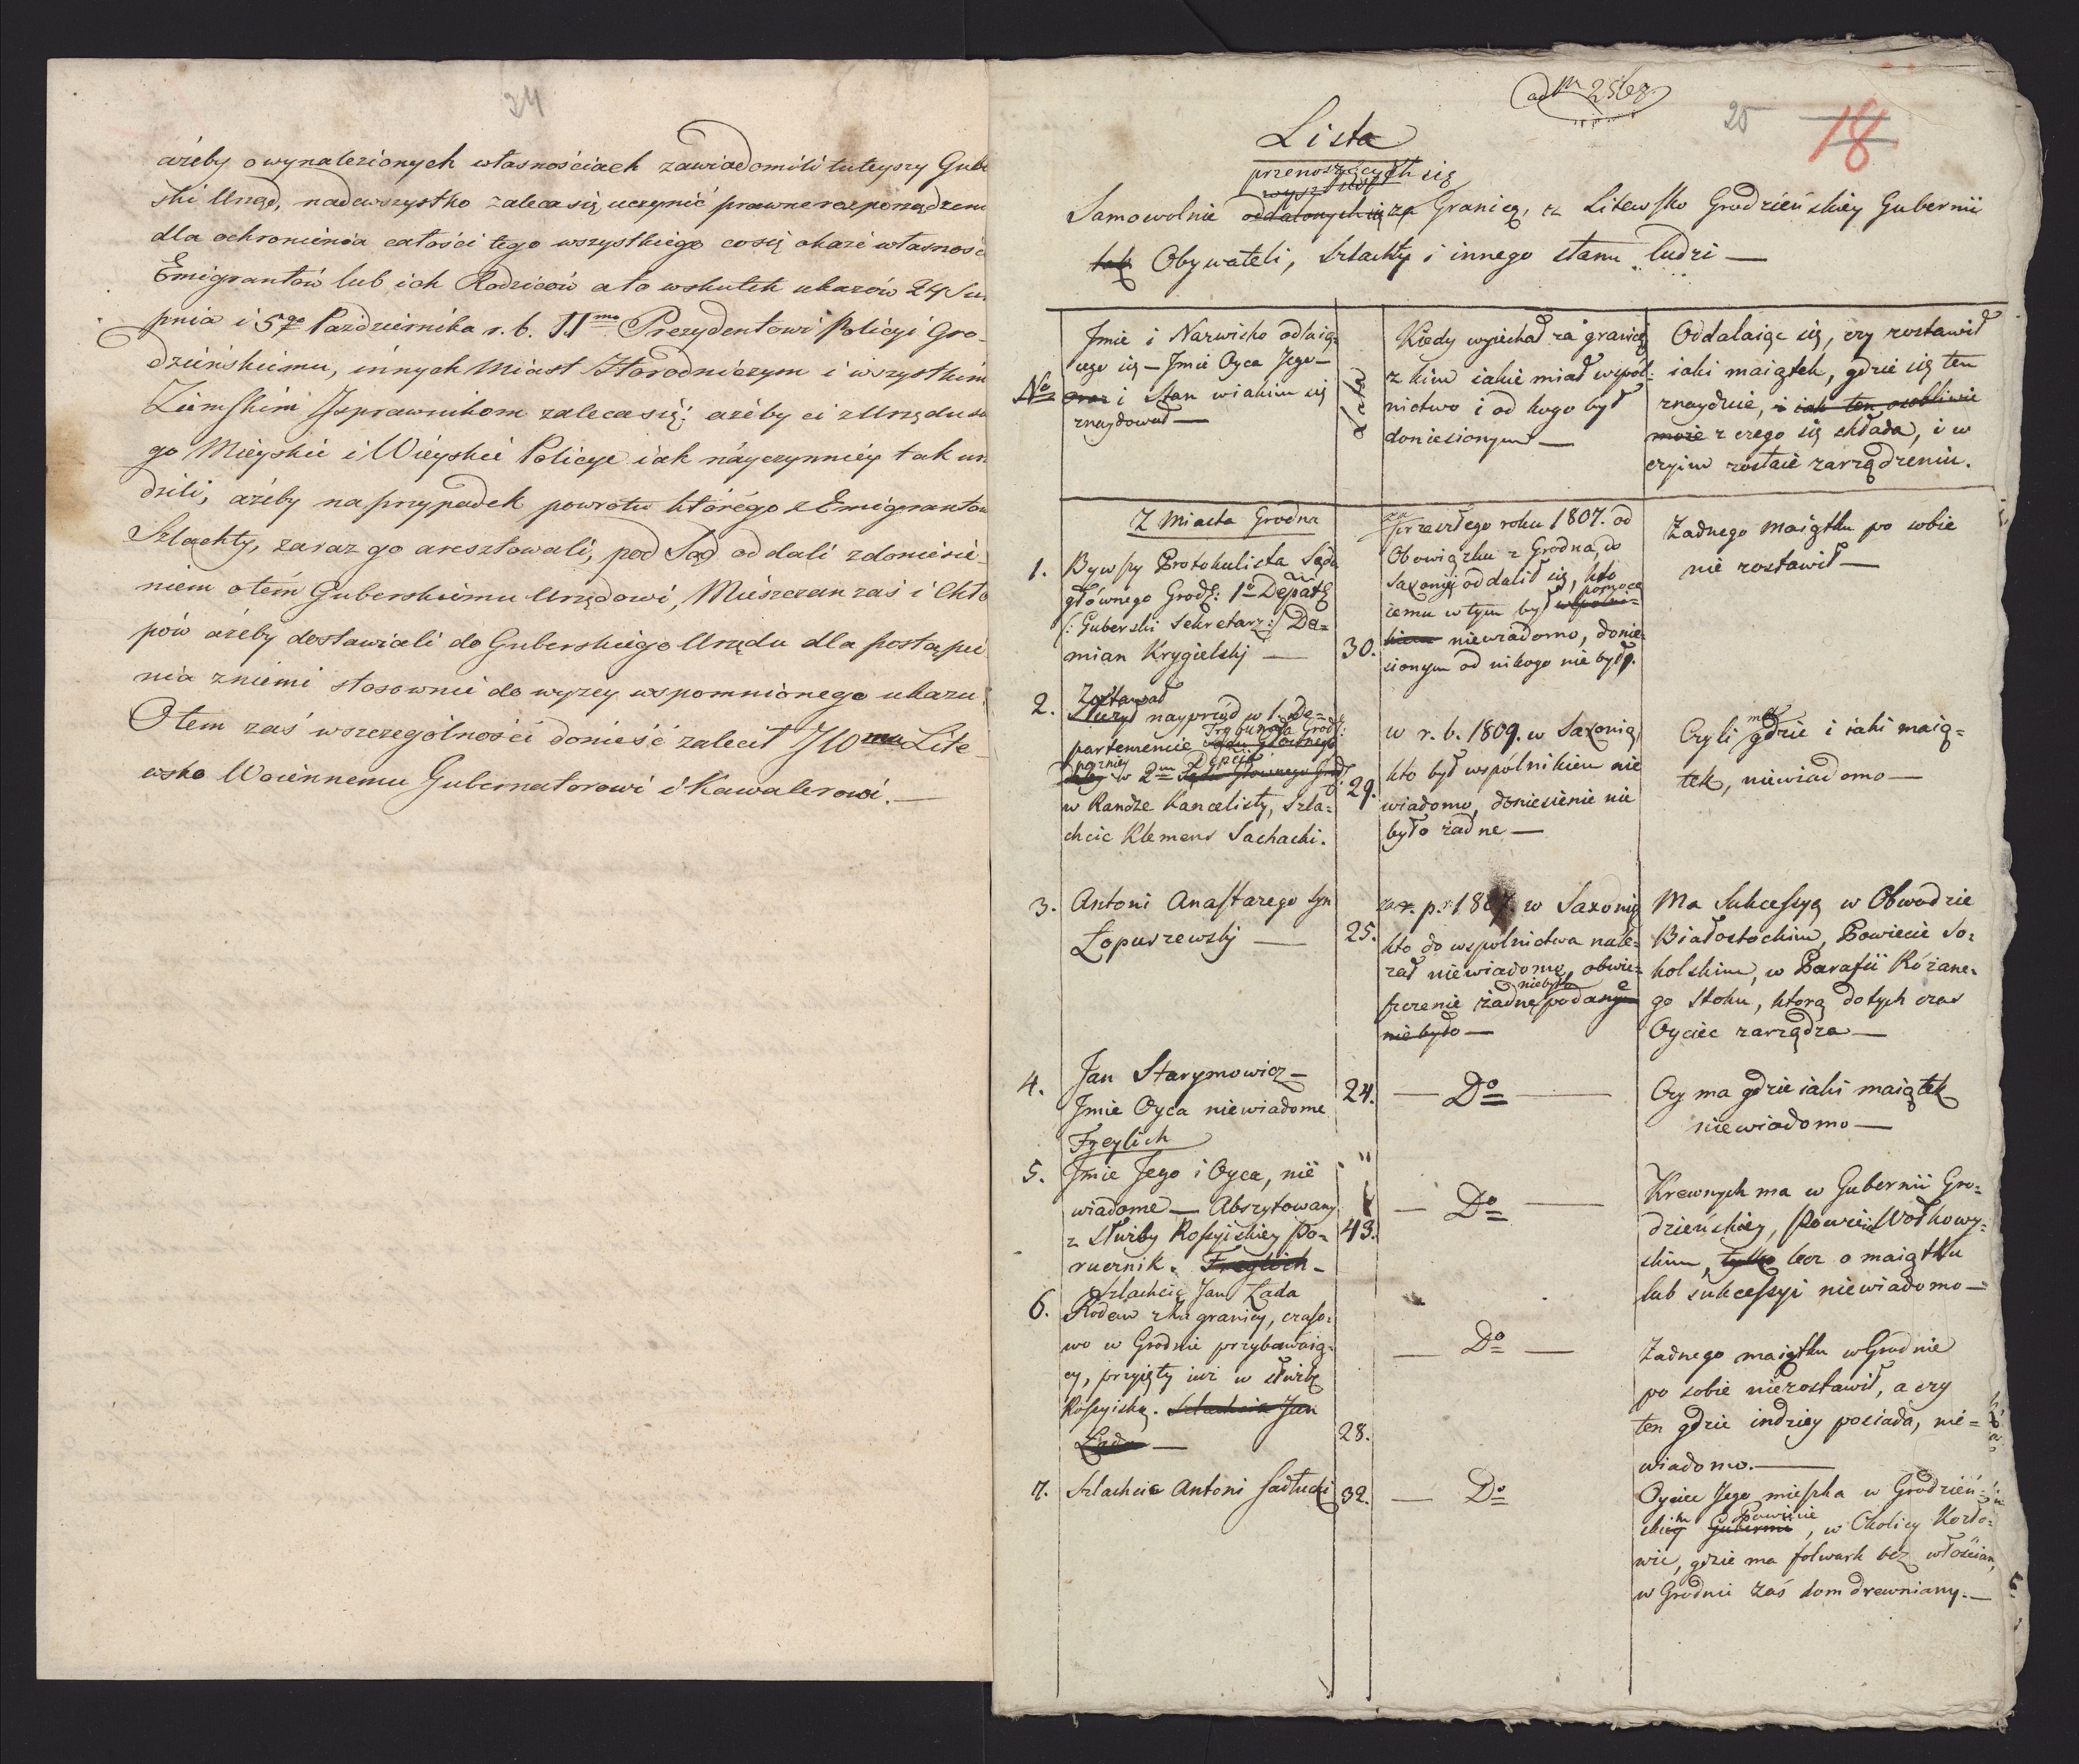 24
ażeby o wynalezionych własnościach zawiadomili tuteyszy Gube
ski Urząd, nadewszystko zaleca się uczynić prawne rozporządzeni
dla ochronienia całości tego wszystkiego co się okaże własnośc
Emigrantów lub ich Rodziców a to wskutek ukazów 24 Sier
pnia i 5go Października r. b. JJmo Prezydentowi Policyi Gro-
dzieńskiemu, innych Miast Horodniczym i wszystkim
Ziemskim Jsprawnikom zaleca się; ażeby ci z Urzędu sw
go Mieyskie i Wieyskie Policye iak nayczynniey tak urz
dzili, ażeby na przypadek powrotu którego z Emigrantow
Szlachty, zaraz go aresztowali, pod Sąd oddali z doniesie-
niem o tém Guberskiemu Urzędowi, Mieszczan zaś i Chło
pów ażeby dostawiali do Guberskiego Urzędu dla postąpie
nia z niemi stosownie do wyżey wspomnionego ukazu.
O tem zaś wszczególności donieść zalecił JW mu Lite-
wsko Woiennemu Gubernatorowi i Kawalerowi. —
ad Nr 2568.
25
18
Lista
przenoszących się
Samowolnie oddalonych się za Granicę, z Litewsko Grodzieńskiey Gubernii
tak Obywateli, Szlachty i innego stanu ludzi —
No
Jmie i Nazwisko oddalią=
cego się — Jmie Oyca Jego —
oraz i Stan w iakim się
znaydował —
Lata
Kiedy wyiechał za granicę
z kim iakie miał wspól=
nictwo i od kogo był
doniesionym —
Oddalaiąc się, czy zostawił
iaki maiątek, gdzie się ten
znayduie, i iak ten osobliwie
może z czego się składa, i w
czyim zostaie zarządzeniu.
Z Miasta Grodna
1. Bywszy Protokulista Sądu
głównego Grodz: 1o Depart:
/: Guberski Sekretarz :/ Da=
mian Krygielskj —
30.
za
przeszłego roku 1807. od
Obowiązku z Grodna, do
Saxonij oddalił się, kto
iemu w tym był pomocą
niewiadomo, donie=
sionym od nikogo nie był.
Żadnego Maiątku po sobie
nie zostawił —
2. Zostawał
Służył nayprzód w 1. De=
Trybunału Grodz:
partemencie Sądu Głównego
poźniey Depar:
w 2m Sądu Głównego Grodz:
w Randze Kancelisty, Szla=
chcic Klemens Sachacki.
29.
w r. b. 1809. w Saxonią
kto był wspólnikiem nie
wiadomo, doniesienie nie
było żadne —
Czyli ma gdzie i iaki maią=
tek, niewiadomo —
3. Antoni Anastazego Syn
Łopuszewskj —
25.
za r. p. 1807. w Saxonią
kto do wspólnictwa nale=
żał niewiadomo, obwie=
niebyło
szczenie żadne podane
nie było —
Ma Sukcessyą w Obwodzie
Białostockim, Powiecie So=
kolskim, w Parafii Różane=
go Stoku, którą dotych czas
Oyciec zarządza —
4. Jan Starymowicz —
Jmie Oyca niewiadome
24.
— Do —
Czy ma gdzie iaki maiątek
niewiadomo —
Freylich
5. Jmie Jego i Oyca, nie
wiadome — Abszytowany
z Służby Rossyiskiey Po=
rucznik. Freylich —
43.
— Do —
Krewnych ma w Gubernii Gro=
dzieńskiey, Powiecie Wołkowy=
skim, tylko lecz o maiątku
lub sukcessyi niewiadomo —
Szlachcic Jan Łada
6. Rodem z Za granicy, czaso=
wo w Grodnie przybawaią=
cy, przyięty iuż w służbę
Rossyiską. Szlachcic Jan
Łada —
28.
— Do —
Żadnego maiątku w Grodnie
po sobie niezostawił, a czy
ten gdzie indziey posiada, nie=
wiadomo. —
7. Szlachcic Antoni Sadłucki
32.
— Do
Oyciec Jego mieszka w Grodzień=
skim Powiecie
Gubernii, w Okolicy Kozło=
wic, gdzie ma folwark bez włościan,
w Grodnie zaś dom drewniany. —